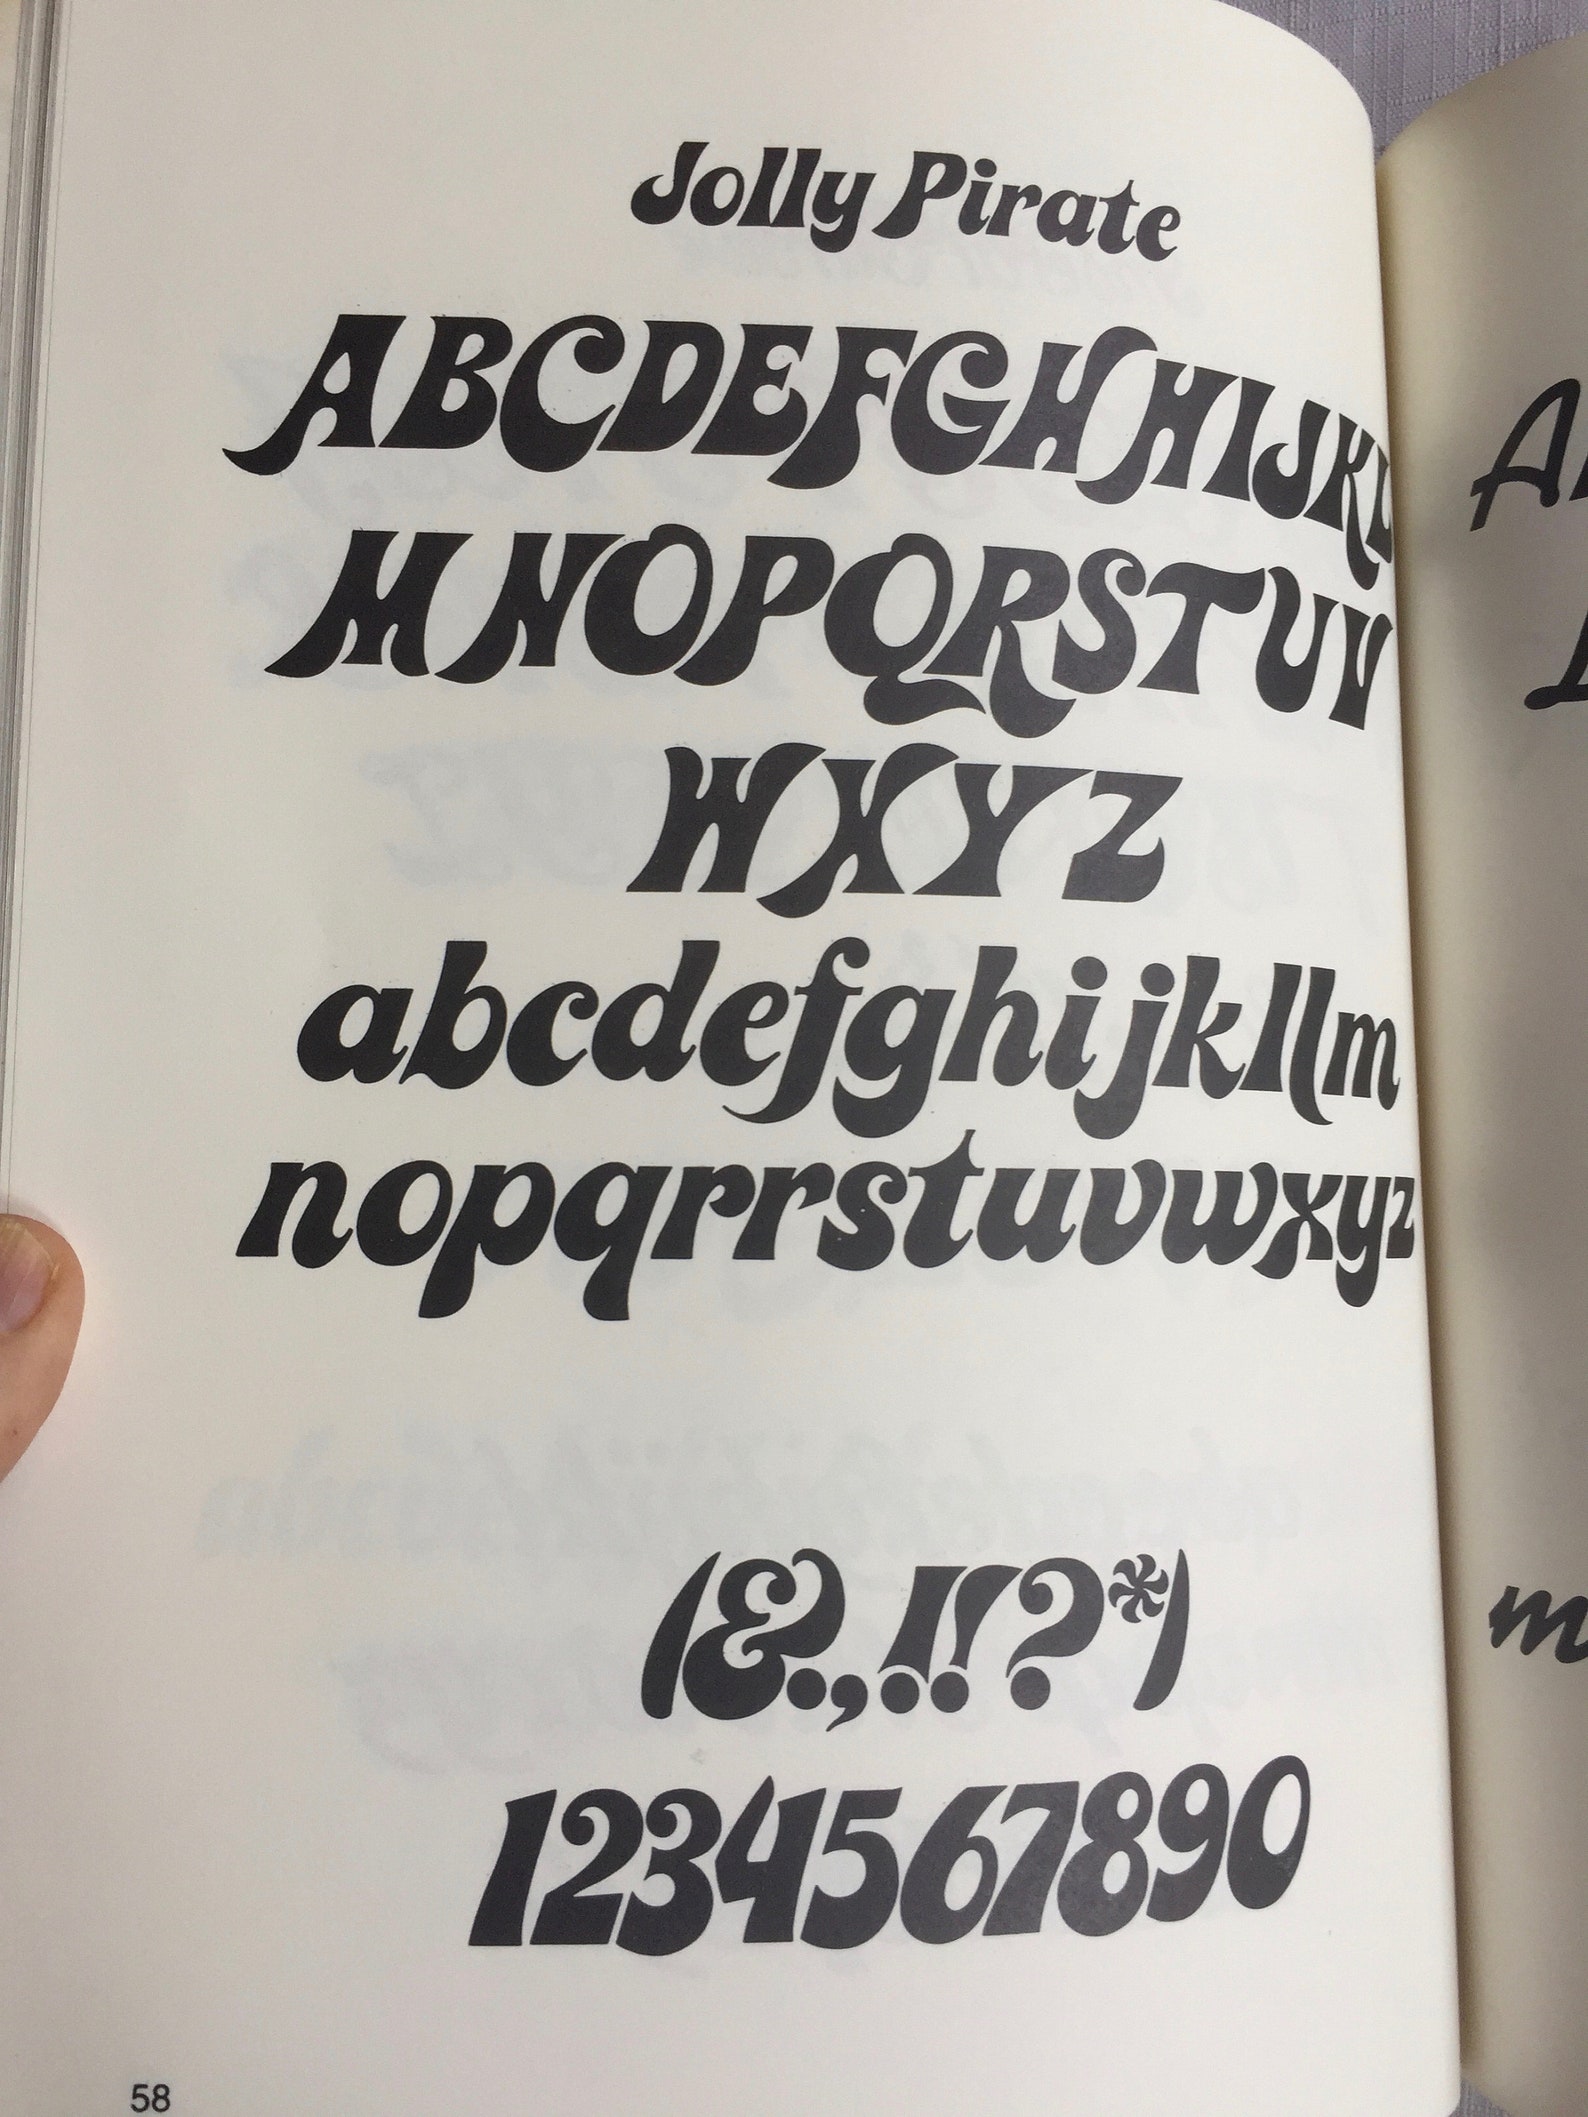 Jolly Pirate
ABCDEFGHHIJKL
MNOPQRSTUV
WXYZ
abcdefghijkllm
nopqrrstuvwxyz
(&.,!!?*)
1234567890
58
A
m